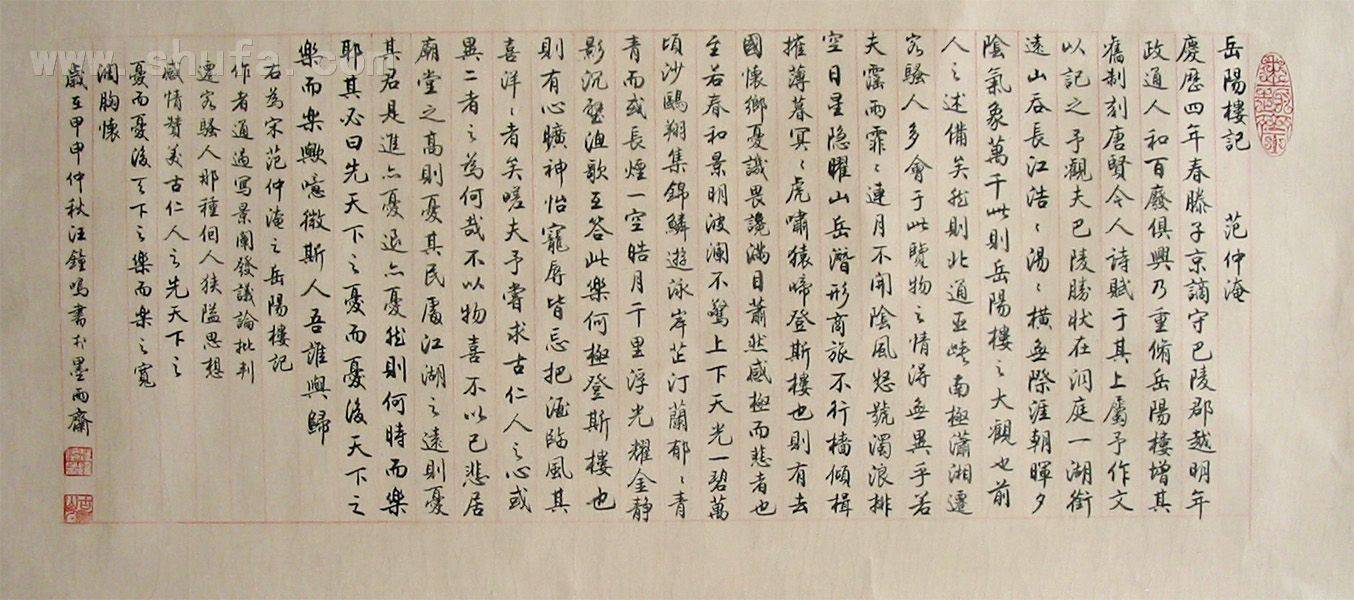 岳陽樓記 范仲淹
慶歷四年春滕子京謫守巴陵郡越明年
政通人和百廢俱興乃重脩岳陽樓增其
舊制刻唐賢今人詩賦于其上屬予作文
以記之予觀夫巴陵勝狀在洞庭一湖銜
遠山吞長江浩〻湯〻橫無際涯朝暉夕
陰氣象萬千此則岳陽樓之大觀也前
人之述備矣然則北通巫峽南極瀟湘遷
客騷人多會于此覽物之情得無異乎若
夫霪雨霏〻連月不開陰風怒號濁浪排
空日星隐曜山岳潛形商旅不行檣傾楫
摧薄暮冥〻虎嘯猿啼登斯樓也則有去
國懷鄉憂譏畏讒滿目蕭然感極而悲者也
至若春和景明波瀾不驚上下天光一碧萬
頃沙鷗翔集錦鱗遊泳岸芷汀蘭郁〻青
青而或長煙一空皓月千里浮光耀金靜
影沉璧漁歌互答此樂何極登斯樓也
則有心曠神怡寵辱皆忘把酒臨風其
喜洋〻者矣嗟夫予嘗求古仁人之心或
異二者之為何哉不以物喜不以己悲居
廟堂之高則憂其民處江湖之遠則憂
其君是進亦憂退亦憂然則何時而樂
耶其必曰先天下之憂而憂後天下之
樂而樂歟噫微斯人吾誰與歸
右為宋范仲淹之岳陽樓記
作者通過寫景闡發議論批判
遷客騷人那種個人狹隘思想
感情贊美古仁人之先天下之
憂而憂後天下之樂而樂之寬
闊胸懷
歲在甲申仲秋汪鐘鳴書於墨雨齋
www.shufa.com